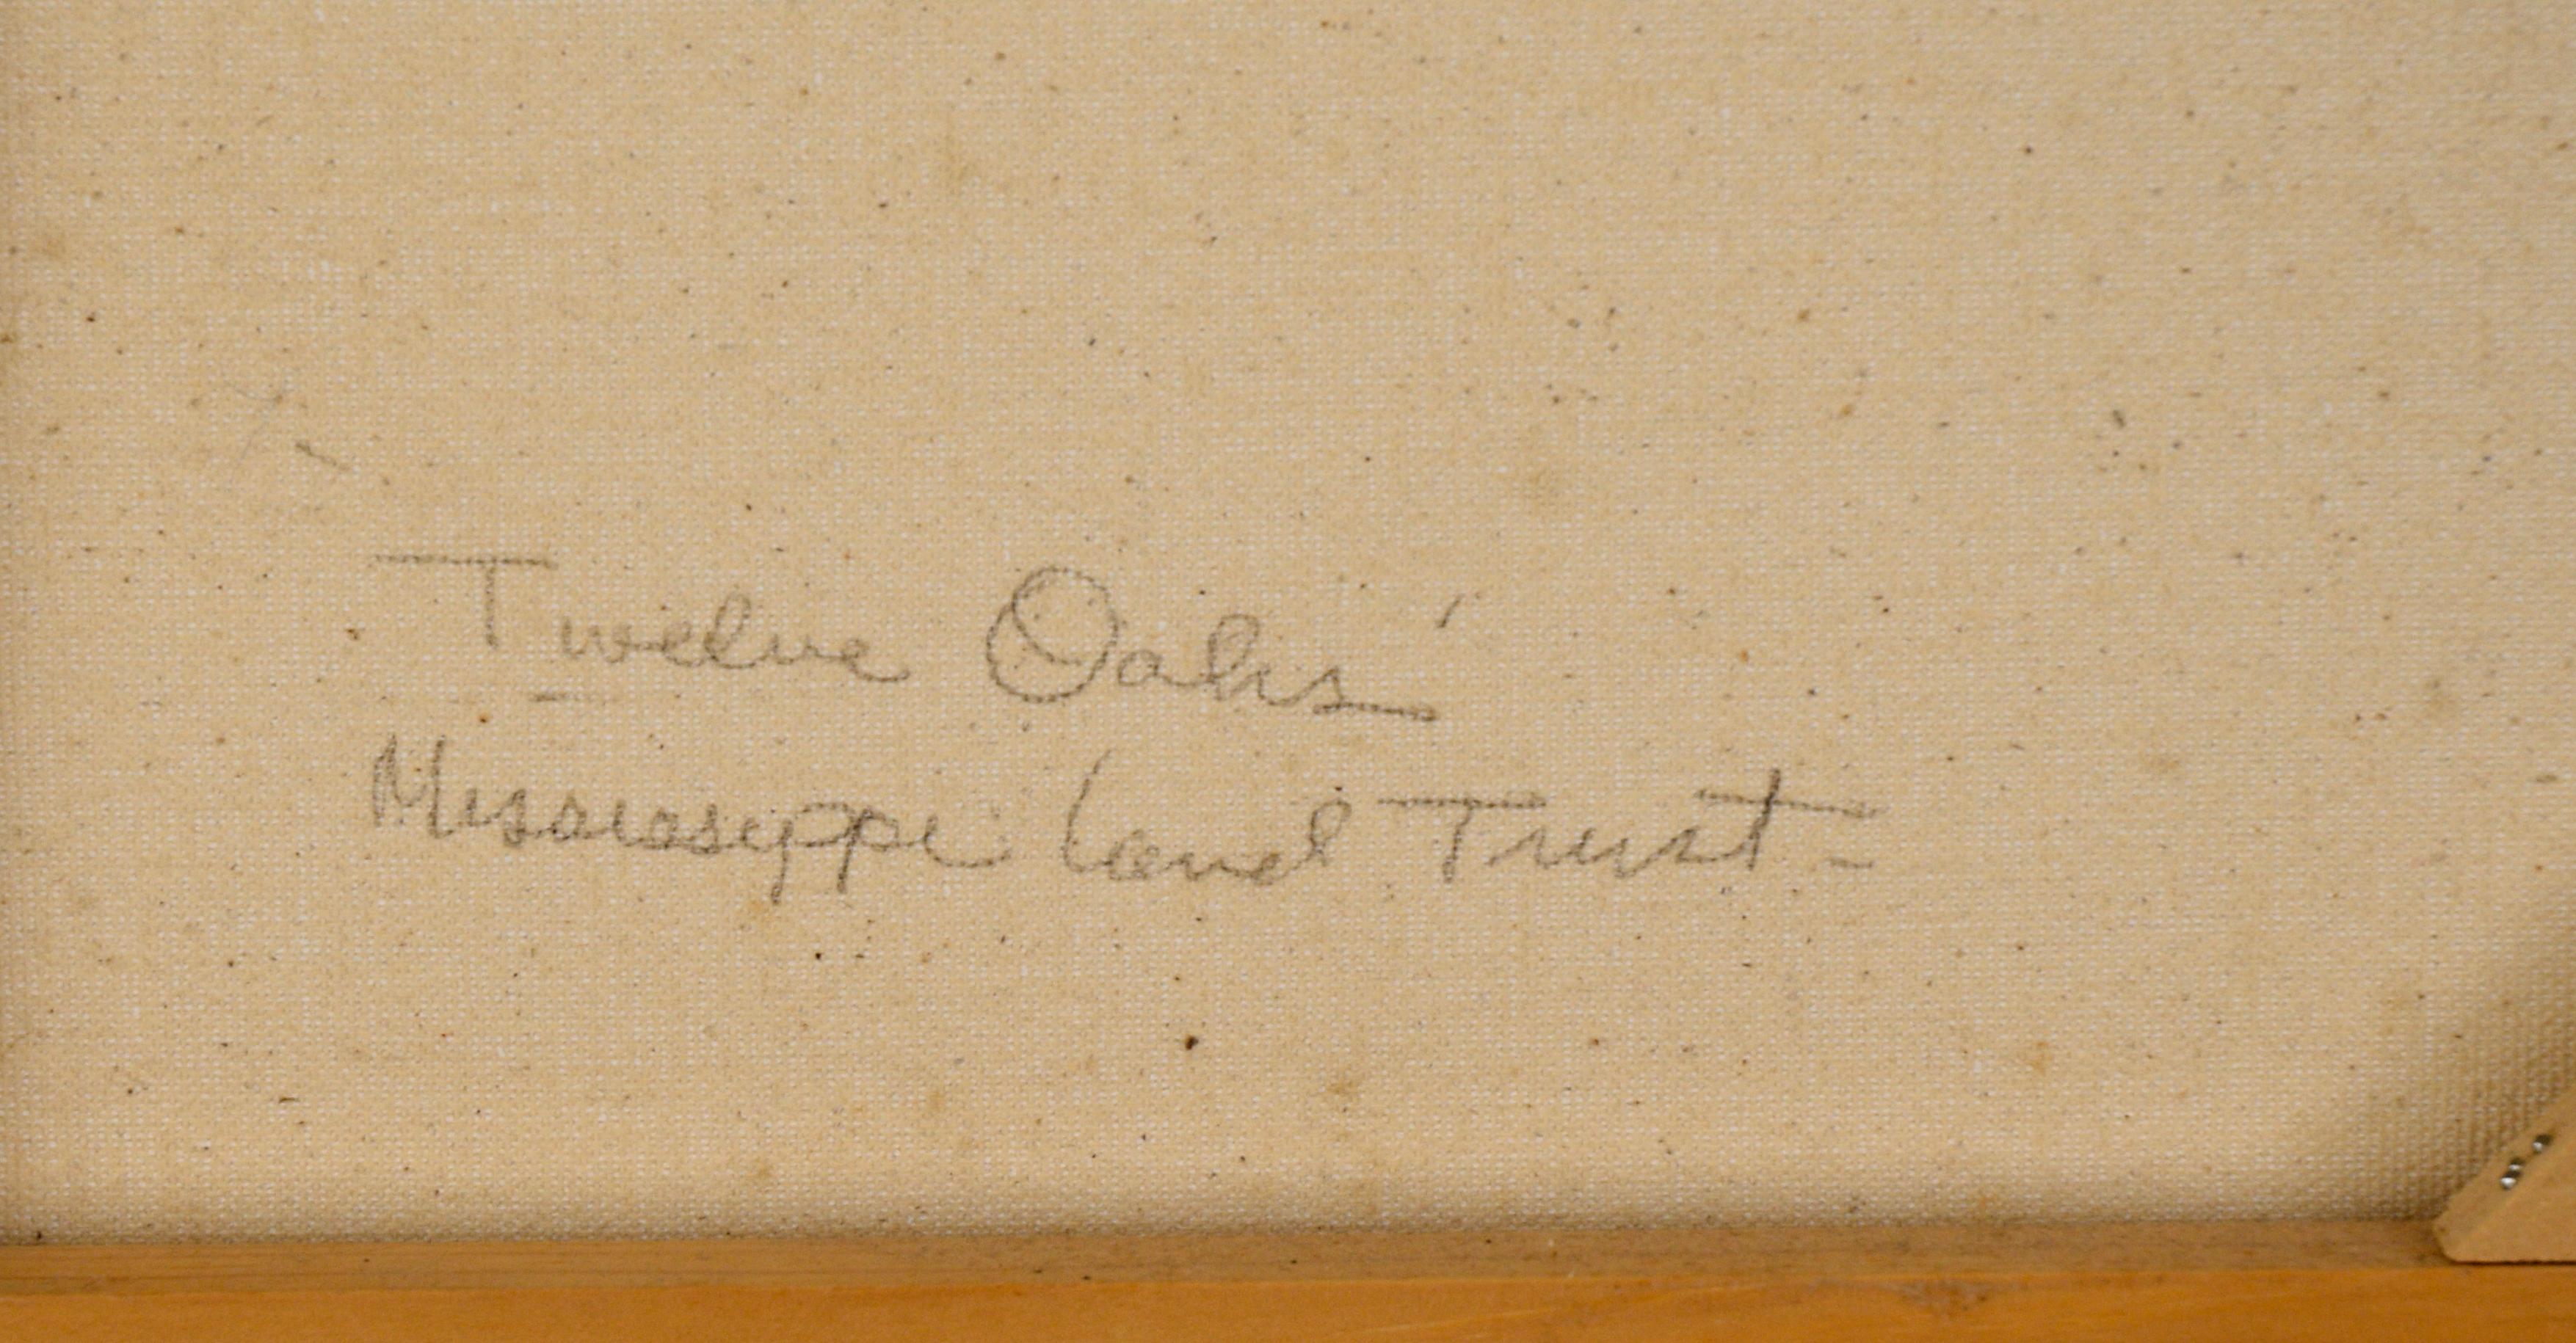 Twelve Oaks
Mississippi Land Trust -